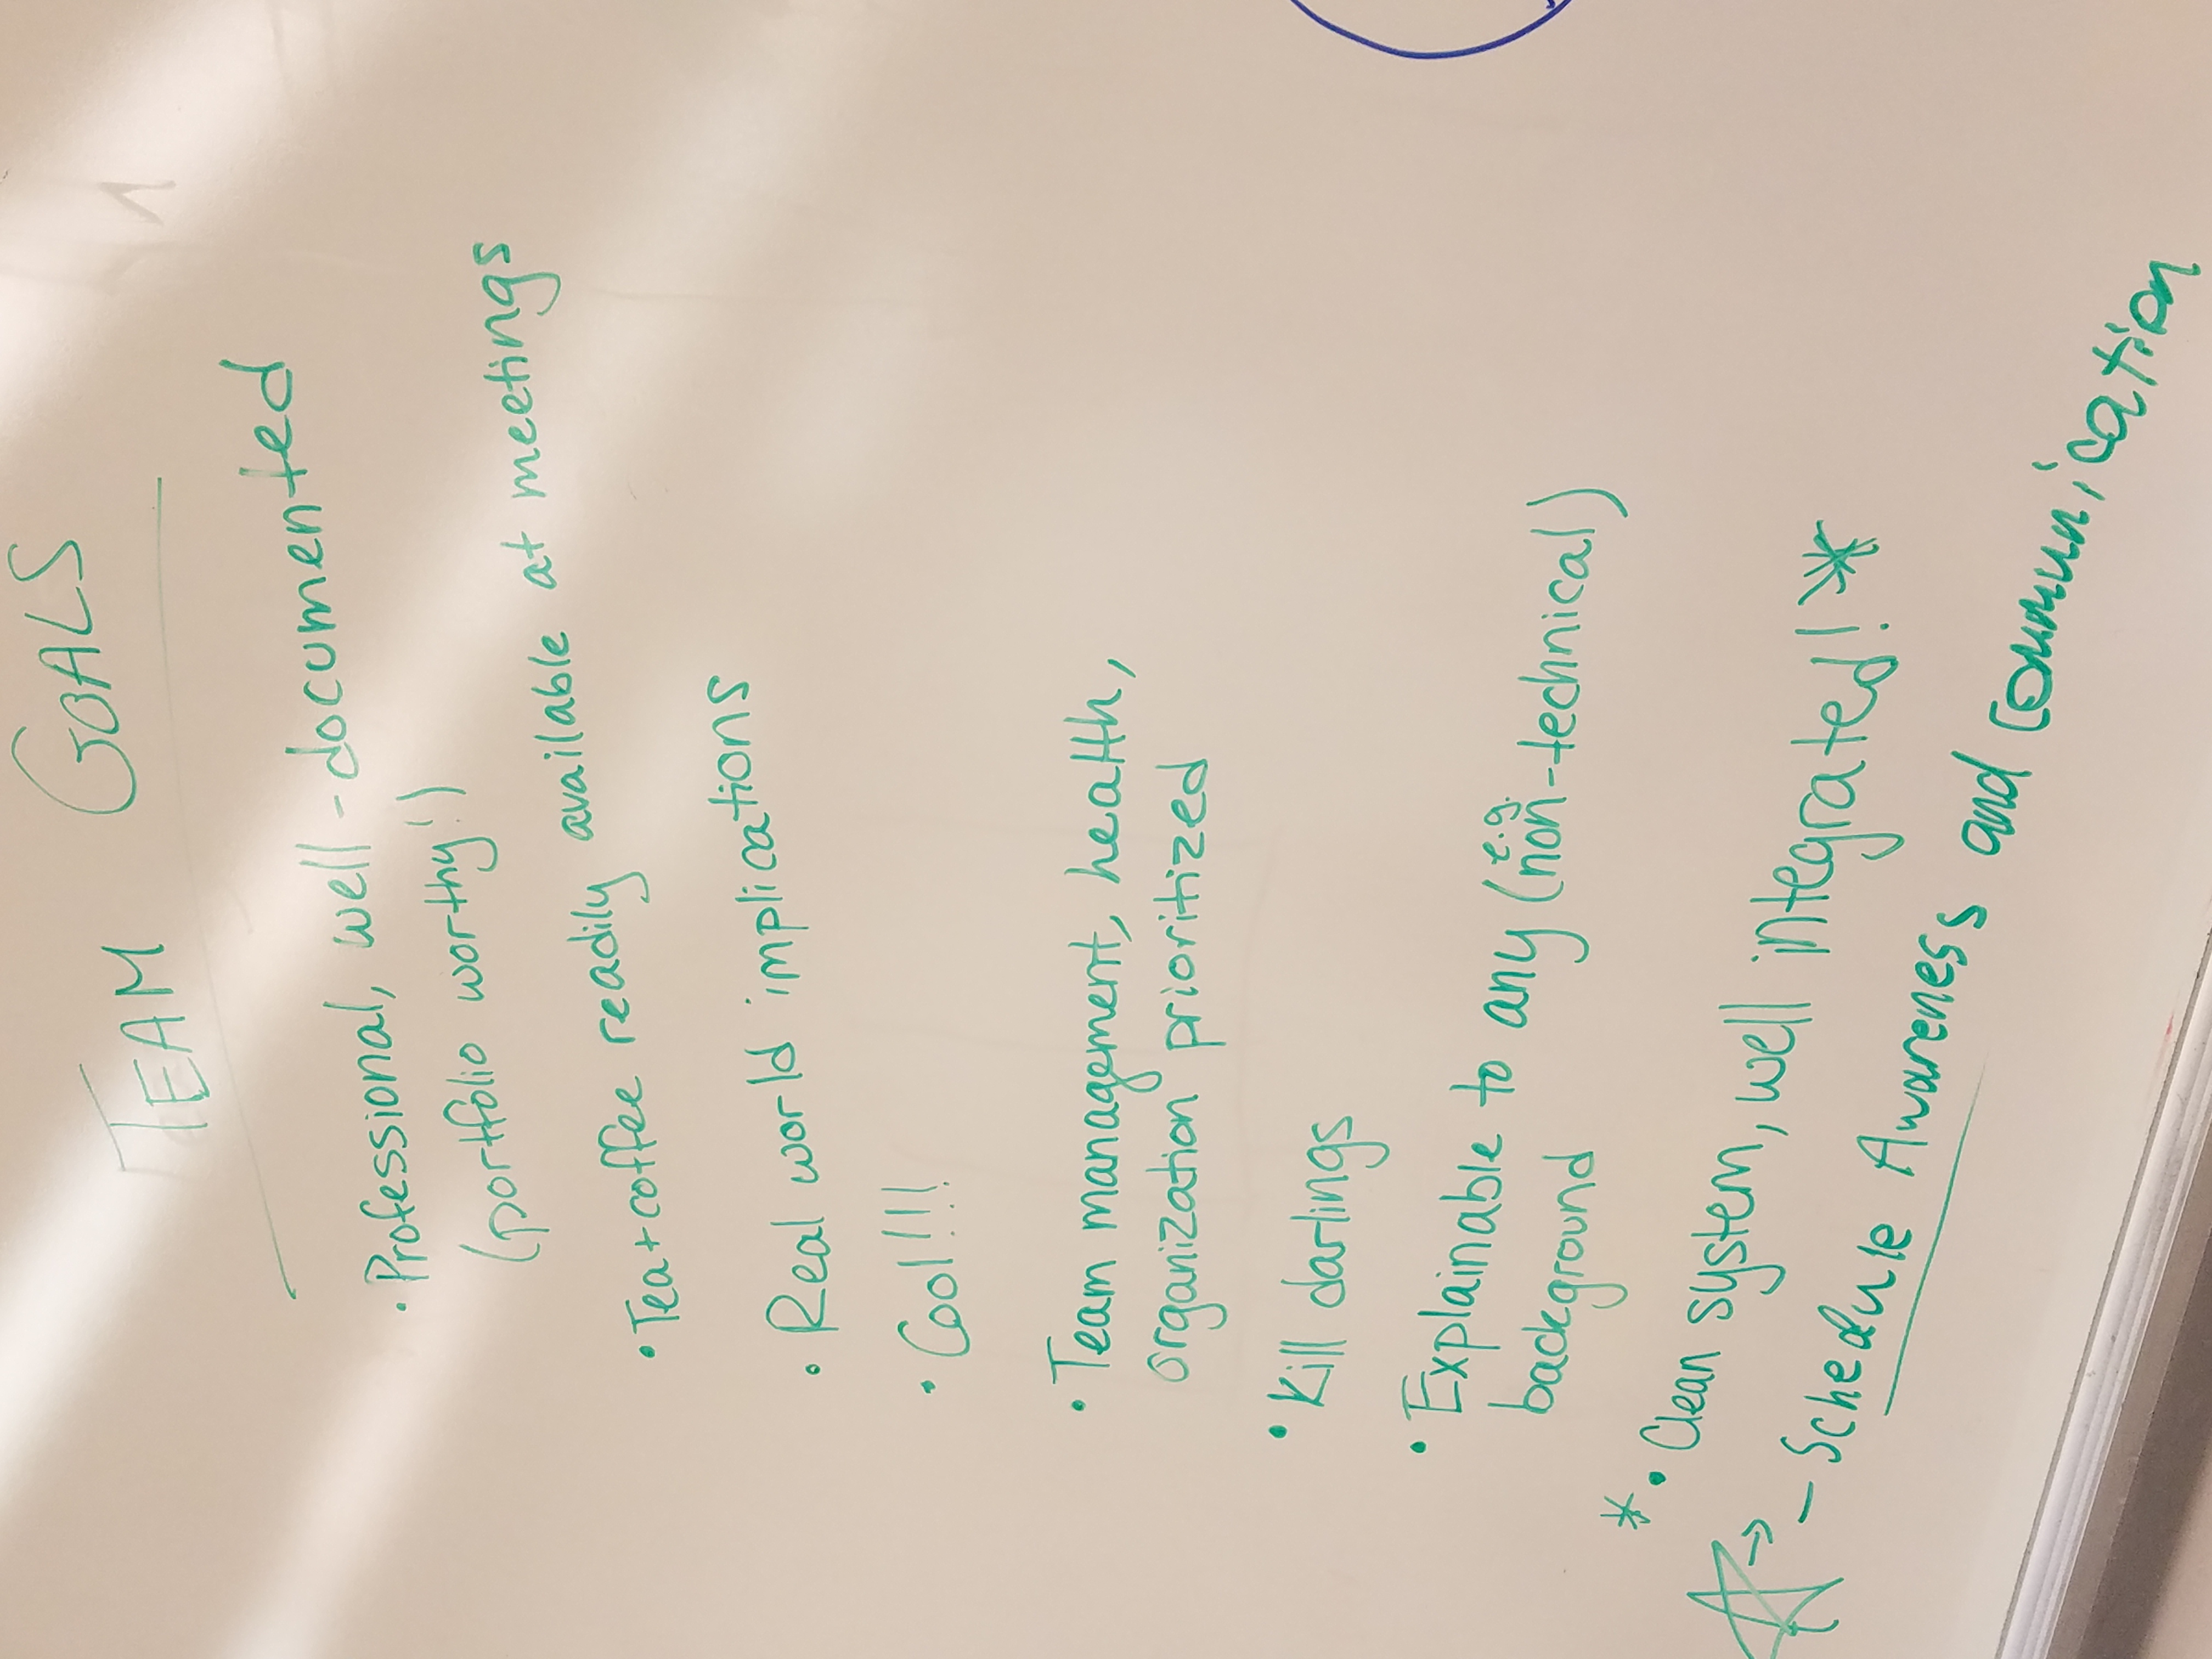 TEAM GOALS
• Professional, well-documented
(portfolio worthy!)
• Tea + coffee readily available at meetings
• Real world implications
• Cool!!!
• Team management, health,
organization prioritized
• Kill darlings
• Explainable to any (e.g. non-technical)
background
* • Clean system, well integrated! *
☆ → - Schedule Awareness and communication